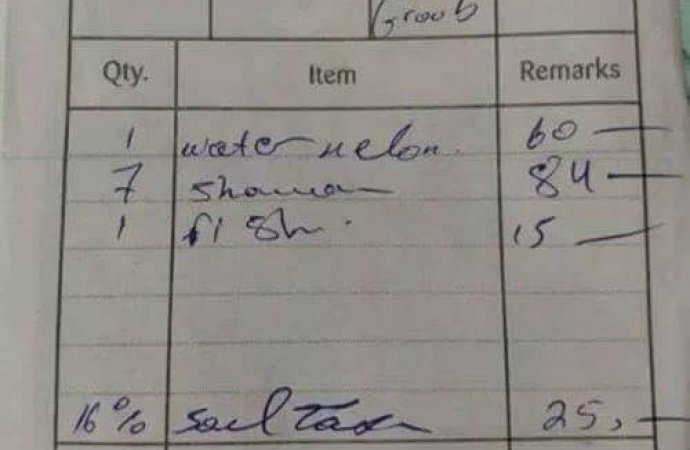 Groob
Qty. Item Remarks
1 water nelon. 60
7 shaman 84
1 fish. 15
16% Saul Tax 25,